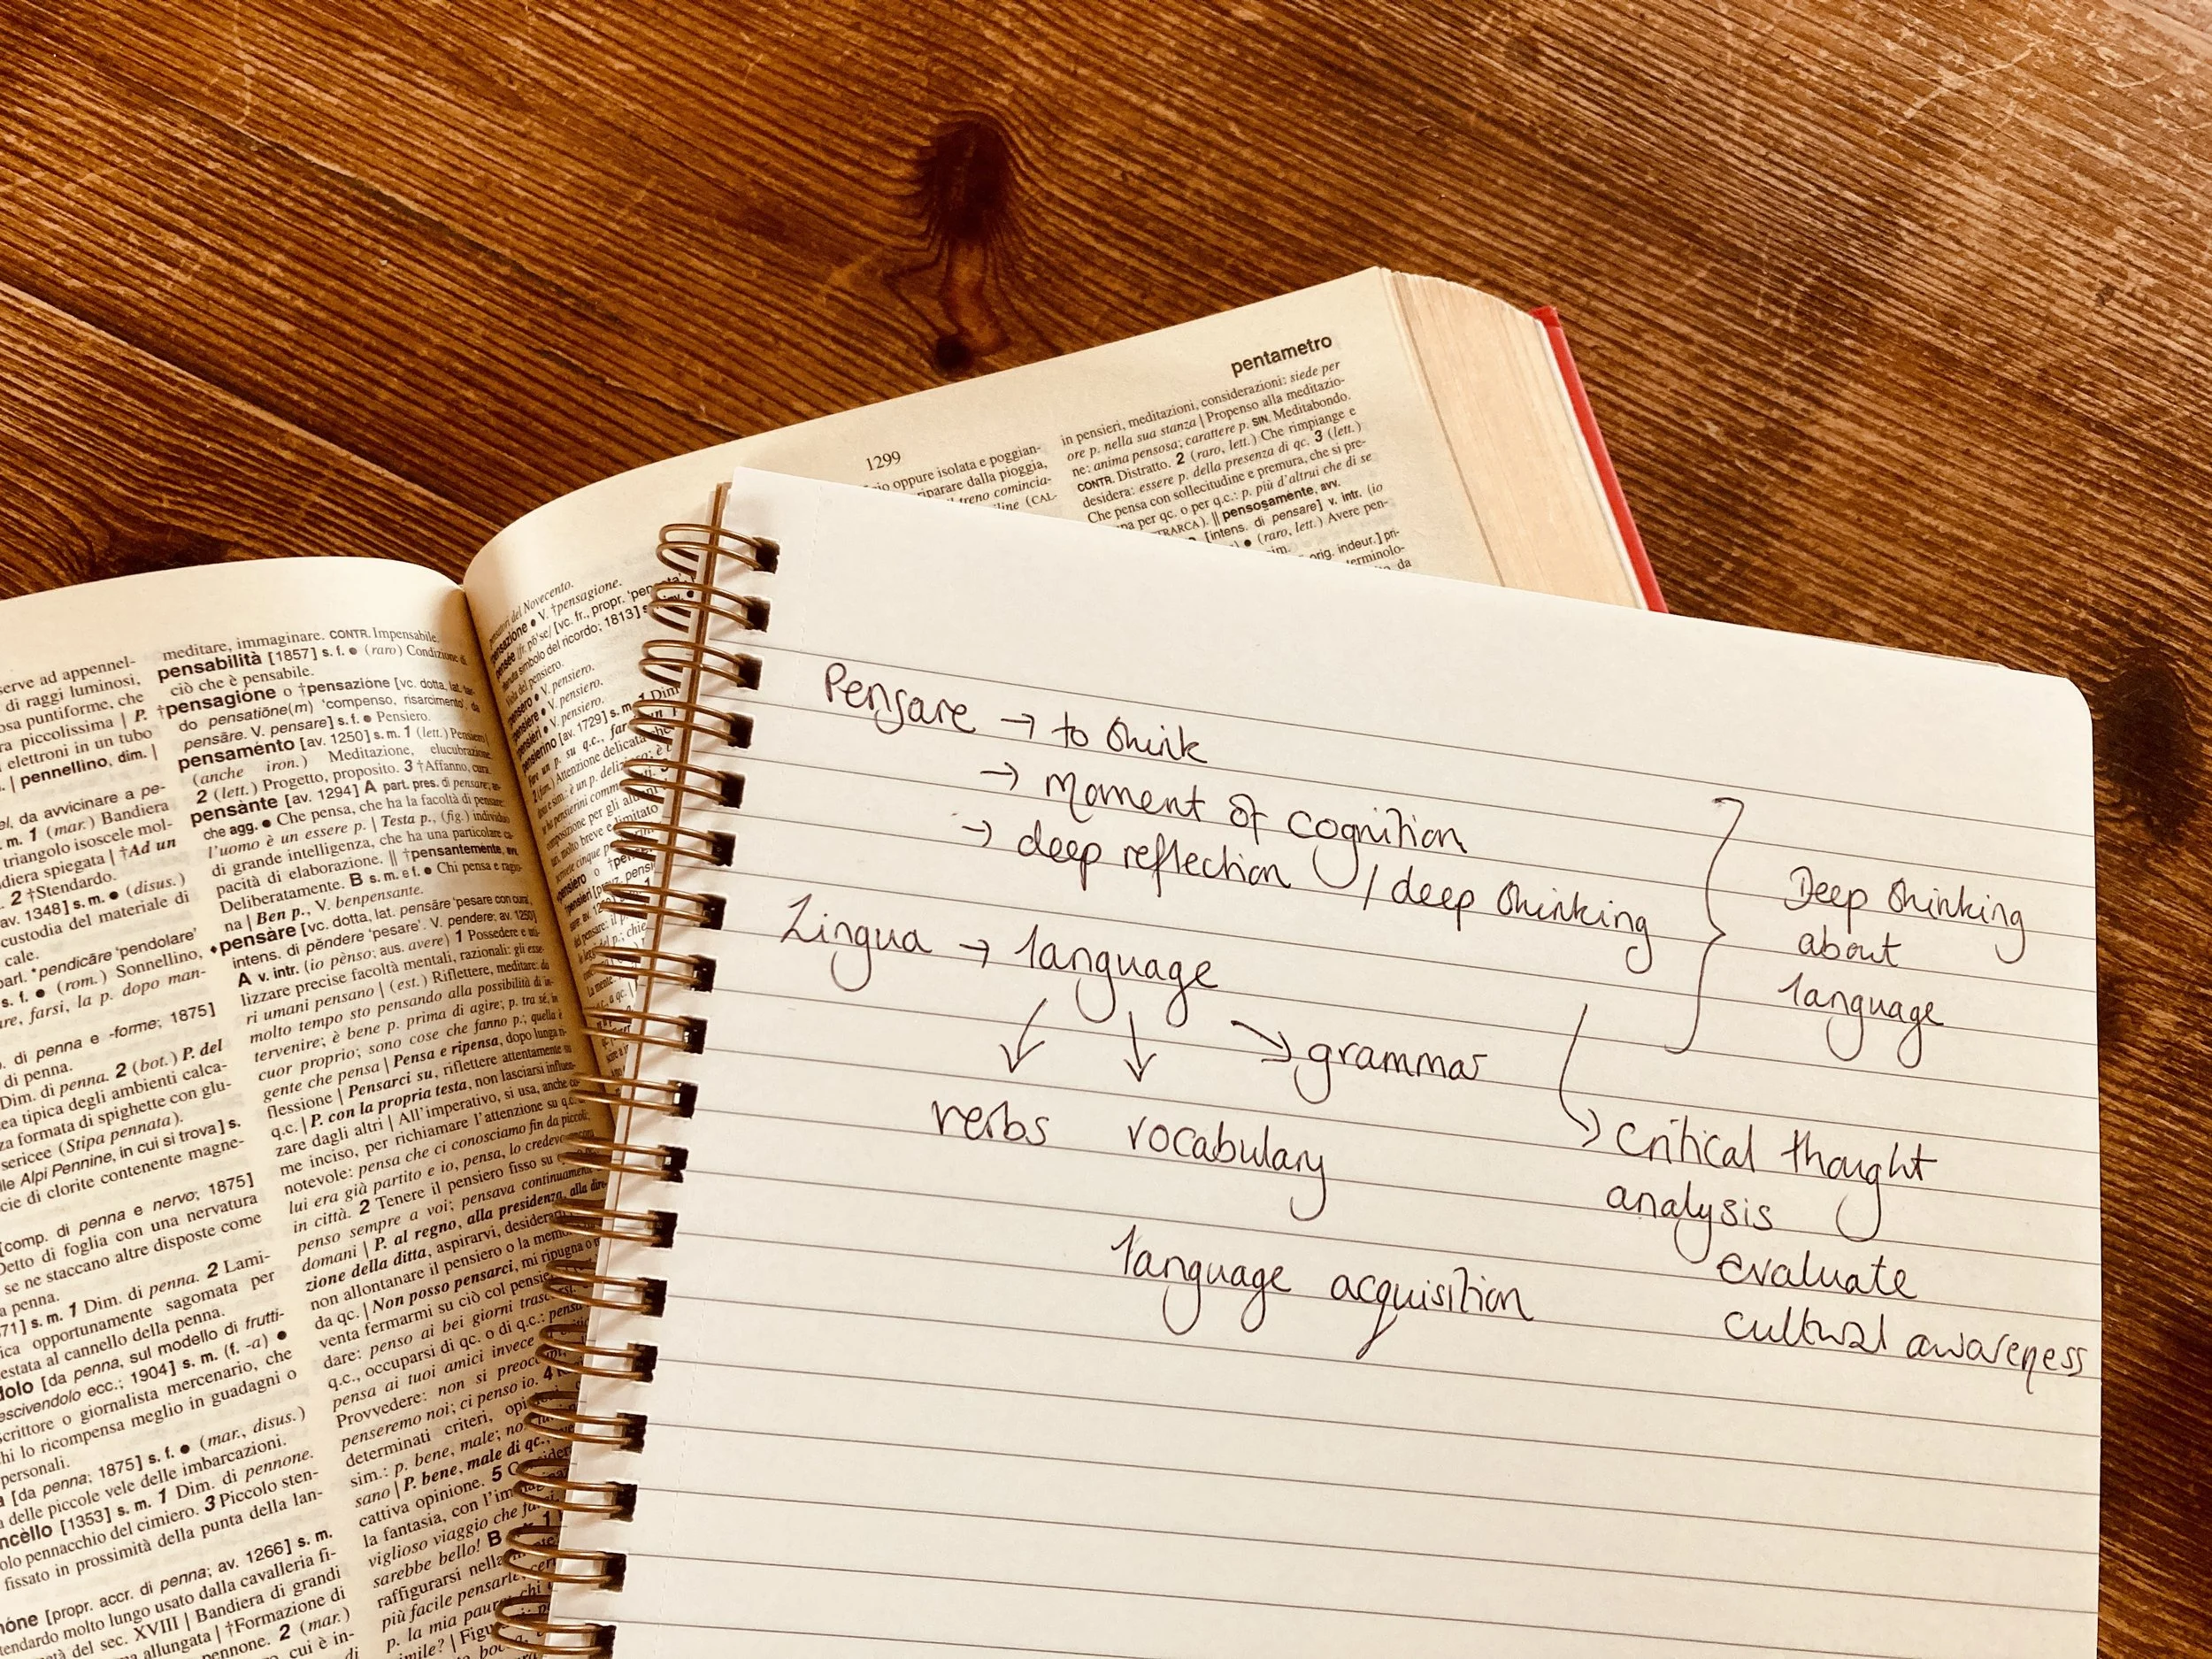 serve ad appennel-
di raggi luminosi,
osa puntiforme, che
ra piccolissima | P.
elettroni in un tubo
| pennellino, dim. |
el, da avvicinare a pe-
m. 1 (mar.) Bandiera
triangolo isoscele mol-
diera spiegata | †Ad un
2 †Stendardo.
av. 1348] s. m. ● (disus.)
custodia del materiale di
cale.
part. *pendicāre 'pendolare'
s. f. ● (rom.) Sonnellino,
re, farsi, la p. dopo man-
di penna e -forme; 1875]
di penna.
Dim. di penna. 2 (bot.) P. del
ea tipica degli ambienti calca-
za formata di spighette con glu-
sericee (Stipa pennata).
lle Alpi Pennine, in cui si trova] s.
cie di clorite contenente magne-
[comp. di penna e nervo; 1875]
Detto di foglia con una nervatura
se ne staccano altre disposte come
a penna.
71] s. m. 1 Dim. di penna. 2 Lami-
ica opportunamente sagomata per
estata al cannello della penna.
dolo [da penna, sul modello di frutti-
escivendolo ecc.; 1904] s. m. (f. -a) ●
scrittore o giornalista mercenario, che
chi lo ricompensa meglio in guadagni o
personali.
[da penna; 1875] s. f. ● (mar., disus.)
delle piccole vele delle imbarcazioni.
ncèllo [1353] s. m. 1 Dim. di pennone.
olo pennacchio del cimiero. 3 Piccolo sten-
fissato in prossimità della punta della lan-
nóne [propr. accr. di penna; av. 1266] s. m.
tendardo molto lungo usato dalla cavalleria fi-
tà del sec. XVIII | Bandiera di grandi
allungata | †Formazione di
pennone. 2 (mar.)
cui è in-
meditare, immaginare. CONTR. Impensabile.
pensabilità [1857] s. f. ● (raro) Condizione di
ciò che è pensabile.
†pensagióne o †pensazióne [vc. dotta, lat. tar-
do pensatiōne(m) 'compenso, risarcimento', da
pensāre. V. pensare] s. f. ● Pensiero.
pensaménto [av. 1250] s. m. 1 (lett.) Pensiero
(anche iron.) Meditazione, elucubrazione.
2 (lett.) Progetto, proposito. 3 †Affanno, cura.
pensànte [av. 1294] A part. pres. di pensare;
che agg. ● Che pensa, che ha la facoltà di pensare:
l'uomo è un essere p. | Testa p., (fig.) individuo
di grande intelligenza, che ha una particolare ca-
pacità di elaborazione. || †pensantemente, avv.
Deliberatamente. B s. m. e f. ● Chi pensa e ragio-
na | Ben p., V. benpensante.
♦pensàre [vc. dotta, lat. pensāre 'pesare con cura',
intens. di pěndere 'pesare'. V. pendere; av. 1250]
A v. intr. (io pènso; aus. avere) 1 Possedere e uti-
lizzare precise facoltà mentali, razionali: gli esse-
ri umani pensano | (est.) Riflettere, meditare: da
molto tempo sto pensando alla possibilità di in-
tervenire; è bene p. prima di agire; p. tra sé, in
cuor proprio; sono cose che fanno p.; quella è
gente che pensa | Pensa e ripensa, dopo lunga ri-
flessione | Pensarci su, riflettere attentamente su
q.c. | P. con la propria testa, non lasciarsi influen-
zare dagli altri | All'imperativo, si usa, anche co-
me inciso, per richiamare l'attenzione su q.c. di
notevole: pensa che ci conosciamo fin da piccoli;
lui era già partito e io, pensa, lo credevo
in città. 2 Tenere il pensiero fisso su
penso sempre a voi; pensava continuamente
domani | P. al regno, alla presidenza, alla dire-
zione della ditta, aspirarvi, desiderarli
non allontanare il pensiero o la memoria
da qc. | Non posso pensarci, mi ripugna o mi
venta fermarmi su ciò col pensiero
dare: penso ai bei giorni trascorsi;
q.c., occuparsi di qc. o di q.c.: pensa
pensa ai tuoi amici invece
Provvedere: non si preoccupi
penseremo noi; ci penso io. 4
determinati criteri, opi
sim.: p. bene, male; no
sano | P. bene, male di qc.,
cattiva opinione. 5
la fantasia, con l'im
viglioso viaggio che
sarebbe bello! B
raffigurarsi nella
più facile pensarle
p. la mia paura
simile? | Figu
1299
pentametro
io oppure isolata e poggian-
riparare dalla pioggia,
treno comincia-
line (CAL-
in pensieri, meditazioni, considerazioni: siede per
ore p. nella sua stanza | Propenso alla meditazio-
ne: anima pensosa; carattere p. SIN. Meditabondo.
CONTR. Distratto. 2 (raro, lett.) Che rimpiange e
desidera: essere p. della presenza di qc. 3 (lett.)
Che pensa con sollecitudine e premura, che si pre-
na per qc. o per q.c.: p. più d'altrui che di se
TRARCA). || pensosaménte, avv.
[intens. di pensare] v. intr. (io
● (raro, lett.) Avere pen-
orig. indeur.] pri-
terminolo-
da
Pensare → to think
→ moment of cognition
→ deep reflection / deep thinking
Lingua → language
grammar
verbs vocabulary
language acquisition
Deep thinking
about
language
critical thought
analysis
evaluate
cultural awareness